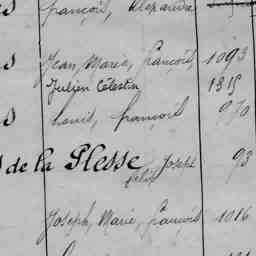 françois, Alexandre
s Jean, Marie, François, 1093
Julien Célestin 1315
s Louis, françois 970
de la Plesse Joseph 93
félix
Joseph, Marie, François 1016